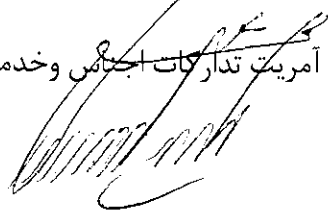 آمریت تدارکات اجناس وخدم